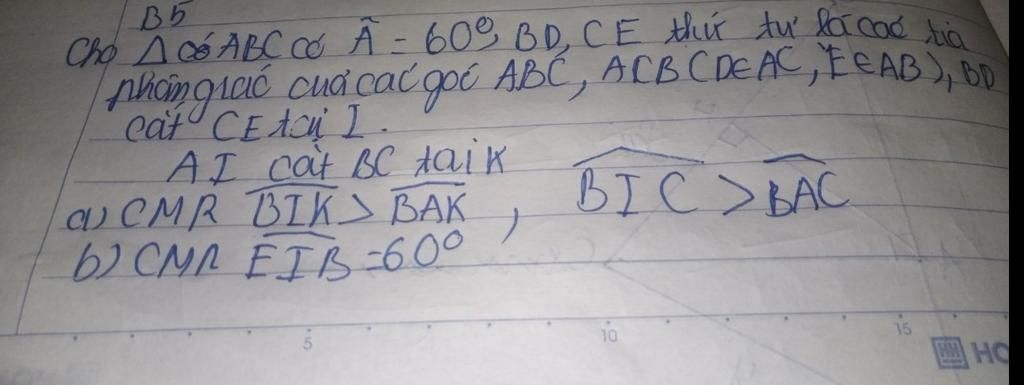 B5
Cho Δ có ABC có Â = 60°, BD, CE thứ tự là các tia
phân giác của các góc ABC, ACB (D∈AC, E∈AB), BD
cắt CE tại I.
AI cắt BC tại K
a) CMR BIK > BAK , BIC > BAC
b) CMR EIB = 60°
5 10 15
HH HO